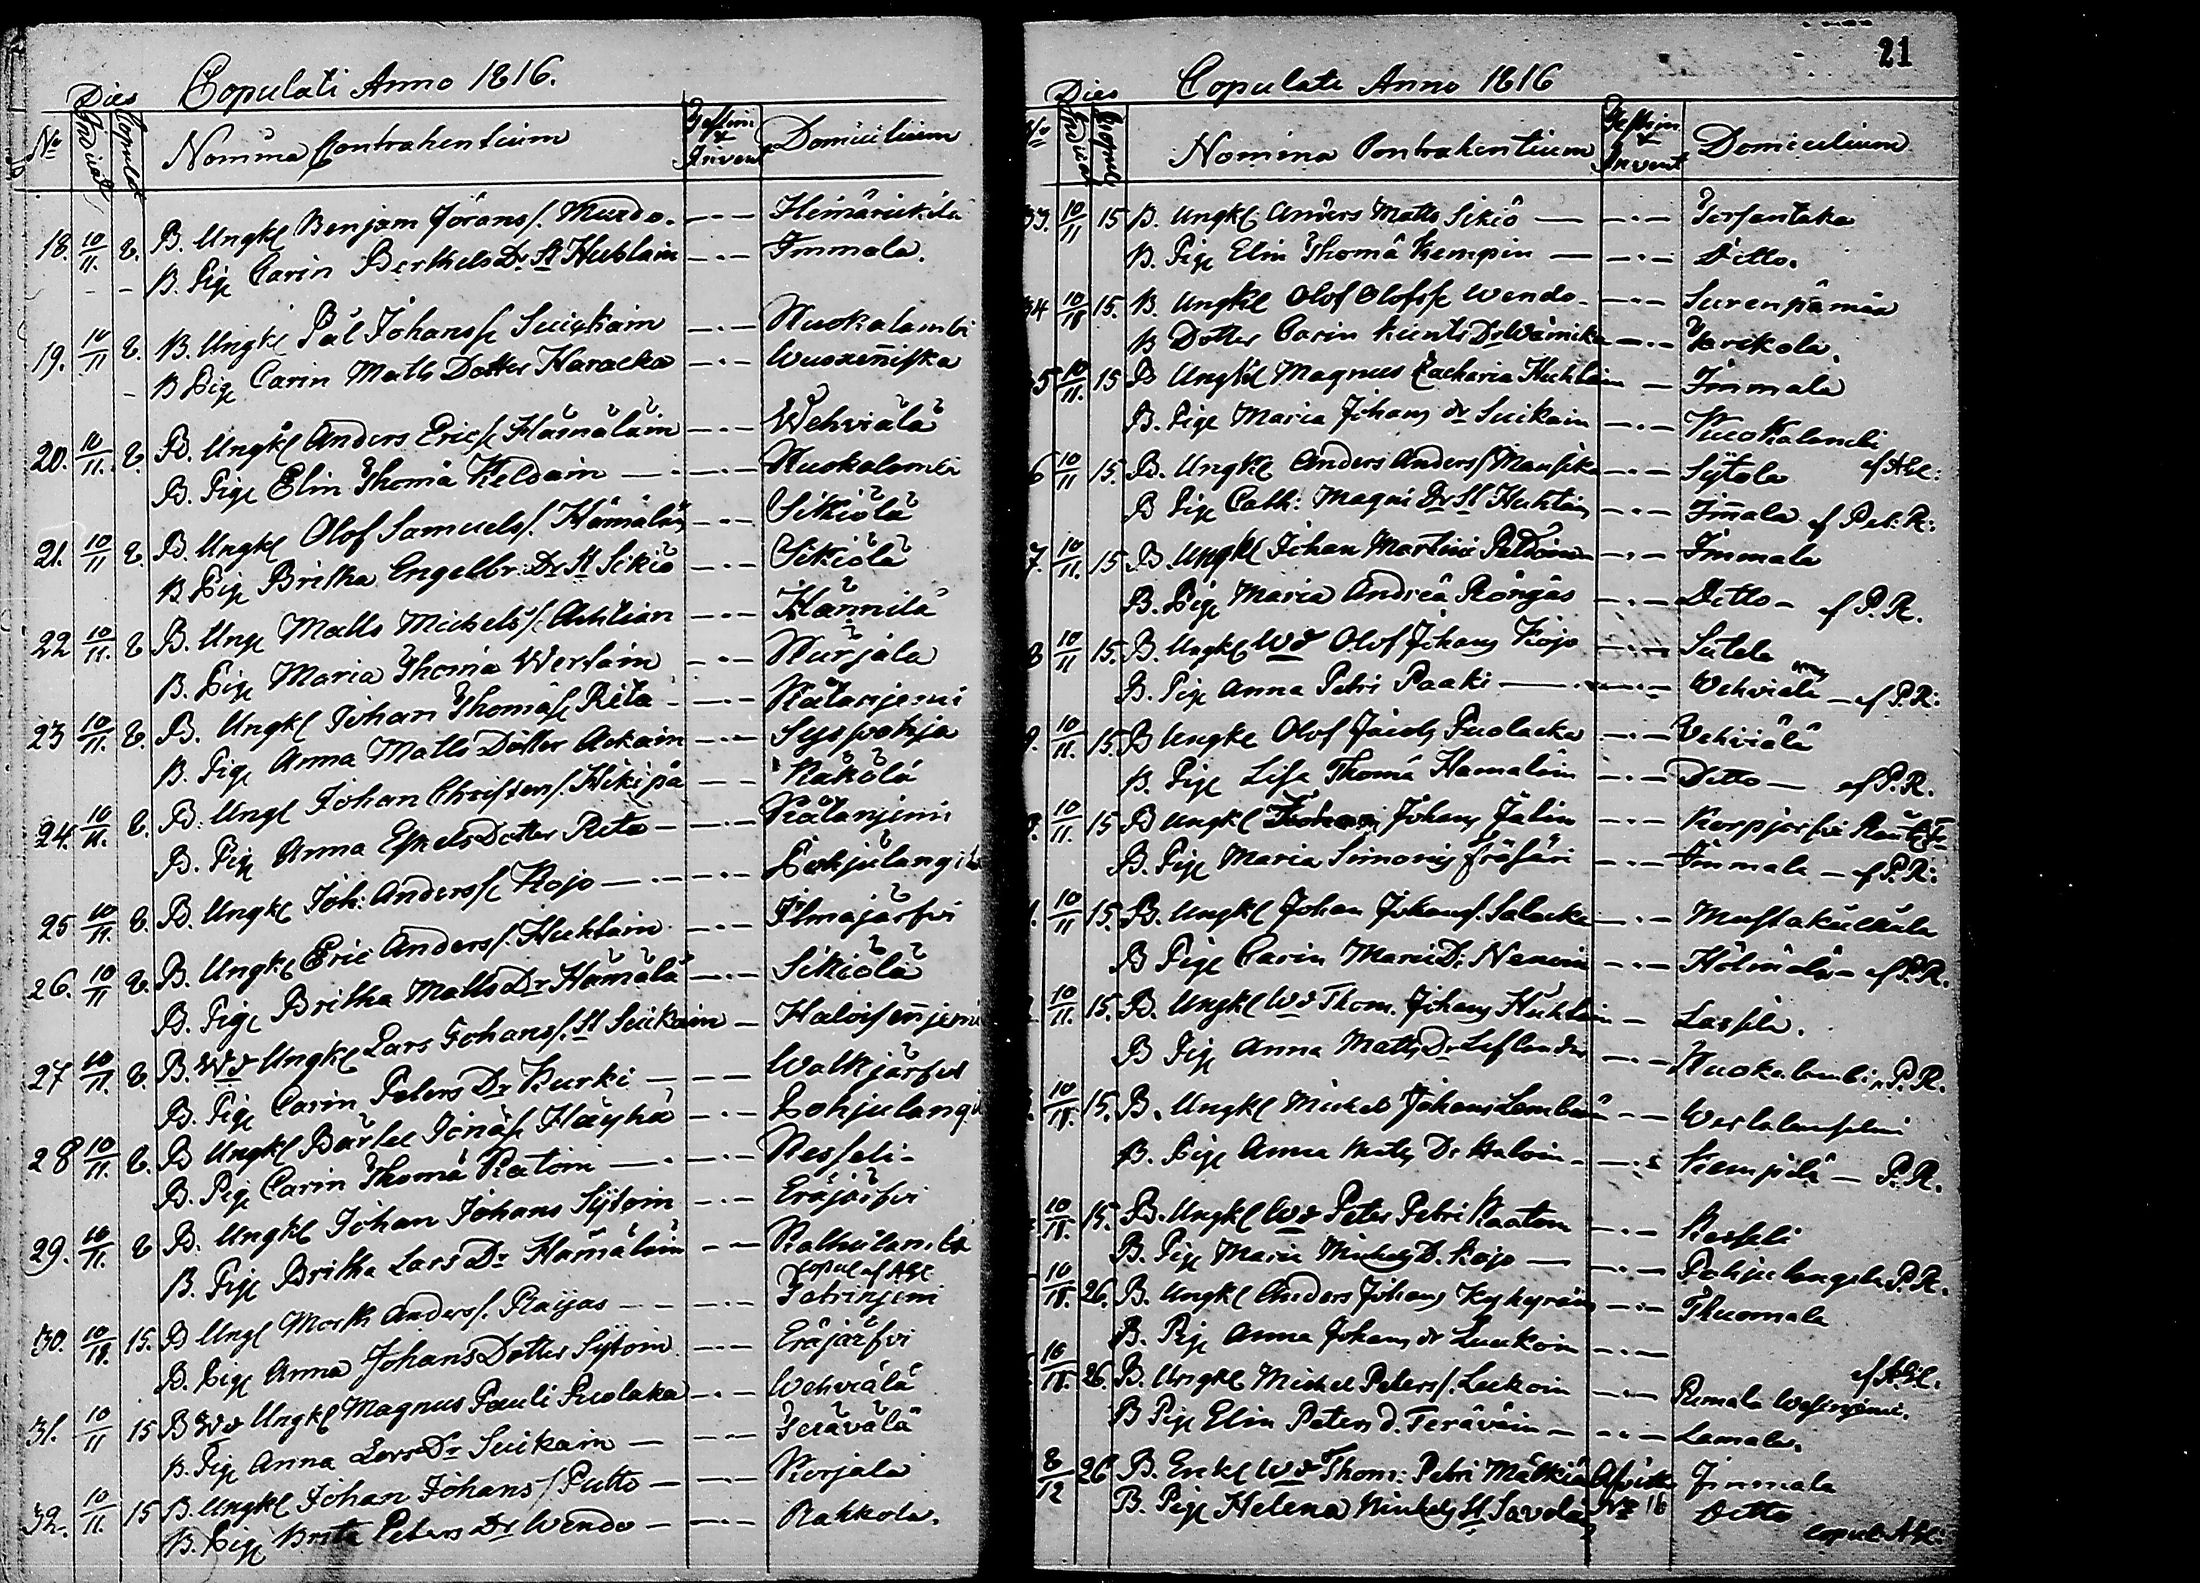 Copulati Anno 1816.
Dies
No Indicat Copulat Nomina Contrahentium Testim & Invent Domicilium
18. 10/11. 8. B. Ungkl Benjam Jörans/. Murdo. Heinäriickilä
B. Pig Carin Berthels Dr St Huhlain Immola.
19. 10/11 8. B. Ungkl Pål Johanss Suickain Nuokalambi
B Pig Carin Matts Dotter Haracka Wuoxenniska
20. 10/11. 8 B. Ungkl Anders Erics Hämäläin Wehviälä
B. Pige Elin Thomä Keldain Nuokalambi
21. 10/11 8. B. Ungkl Olof Samuels/. Hämäläin Sikiölä
B Pige Britha Engelbr. Dr St Sikiö Sikiölä
22 10/11. 8 B. Ung Matts Michels/. Achtian Hannila
B. Pige Maria Thomä Wertain Nurjala
23 10/11. 8. B. Ungkl Johan Thomäs Rita Rätänjemi
B. Pige Anna Matts Dotter Ackain Syspohja
24. 10/11. 8. B. Ungl Johan Christers/. Hikipä Räkölä
B. Pige Anna Eskels Dotter Rita Rätänjemi
25 10/11. 8. B. Ungkl Joh: Anderss Kojo Pohjulangila
26. 10/11 8. B. Ungkl Eric Anders/. Huhtain Ilmajärfvi
B. Pige Britha Matts Dr Hämälä Sikiölä
27 10/11. 8. B. Wd Ungkl Lars Johans/. St Suikain Haloisenjemi
B. Pige Carin Peters Dr Kurki Walkjärfvi
28 10/11. 8. B Ungkl Bärtel Jönäs Häyhä Pohjulangi
B. Pig Carin Thomä Ratoin Resseli
29. 10/11. 8 B. Ungkl Johan Johans Sÿtoin Eräjärfvi
B. Pige Britha Lars Dr Hämäläin Kalhulambi
copul af AGl
30. 10/11. 15. B Ungl Marth Anders/. Raijas Petrinjemi
B. Pige Anna Johans Dotter Sÿtoin Eräjärfvi
31. 10/11 15 B Wd Ungkl Magnus Pauli Puolaka Wehviälä
B. Pig Anna Lars Dr Suikain Terävälä
32. 10/11. 15 B. Ungkl Johan Johans/ Putto Korjala
B. Pige Brita Peters Dr Wendo Rahkola.
21
Copulati Anno 1816
Dies
No Indicat Copul Nomina Contrahentium Testim & Invent Domicilium
33. 10/11 15 B. Ungkl Anders Matts Sikiö Torsantaka
B. Pige Elin Thomä Kempin Ditto.
34 10/11 15. B. Ungkl Olof Olofss Wendo Surenpämäa
B Dotter Carin Knuts Dr Wärnika Yarikola.
35 10/11. 15 B Ungkl Magnus Zacharia Huhtain Immala
B. Pige Maria Johans dr Suikain Nuokalambi
6 10/11 15. B. Ungkl Anders Anders/ Mansika Sÿtola af AGl:
B Pige Cath: Magni Dr St Huhtain Immala af Pet: R:
7. 10/11. 15 B. Ungkl Johan Martini Peldoinen Immala
B. Pige Maria Andreä Röngäs Ditto af P. R.
8 10/11 15. B. Ungkl Wd Olof Johans Kojo Sutela
B. Pige Anna Petri Paaki Wehviälä af P. R:
9. 10/11. 15. B Ungkl Olof Jacobs Puolacka Vehviälä
B. Pige Lisa Thomä Hamaläin Ditto af P. R.
10/11. 15 B Ungkl Johans Jälin Korpjärfvi
B. Pige Maria Simonis Träsäri Immala af P. R:
1. 10/11 15. B. Ungkl Johan Johans/. Salacka Mustakülküla
B Pige Carin Dr Hölmälä af P. R.
10/11. 15. B. Ungkl Wd Thom. Johans Huhtain Lassila.
B Pige Anna Matts Dr Leslander Nuokalambi P. R.
10/11. 15. B. Ungkl Michel Johans Lembain
B. Pige Anna Matts Dr Haloin Kempilä P. R.
10/11. 15. B. Ungkl Wd Peter Petri Raatoin Resseli
B. Pige Maria Michels D. Kojo Pohjulangila P. R.
10/11. 26. B. Ungkl Anders Johans Kykyräin Thuomala
B. Pige Anna Johans dr Luukoin
af AGl.
10/11. 26. B. Ungkl Michel Peters/. Luckoin Rimala
B Pige Elin Peters d. Teräväin Lamala.
8/12 26 B. Enkl Wd Thom: Petri Mälkiä Afvitte Immala
B. Pige Helena Michels St Savolain No 16 Ditto
copul. AGl: